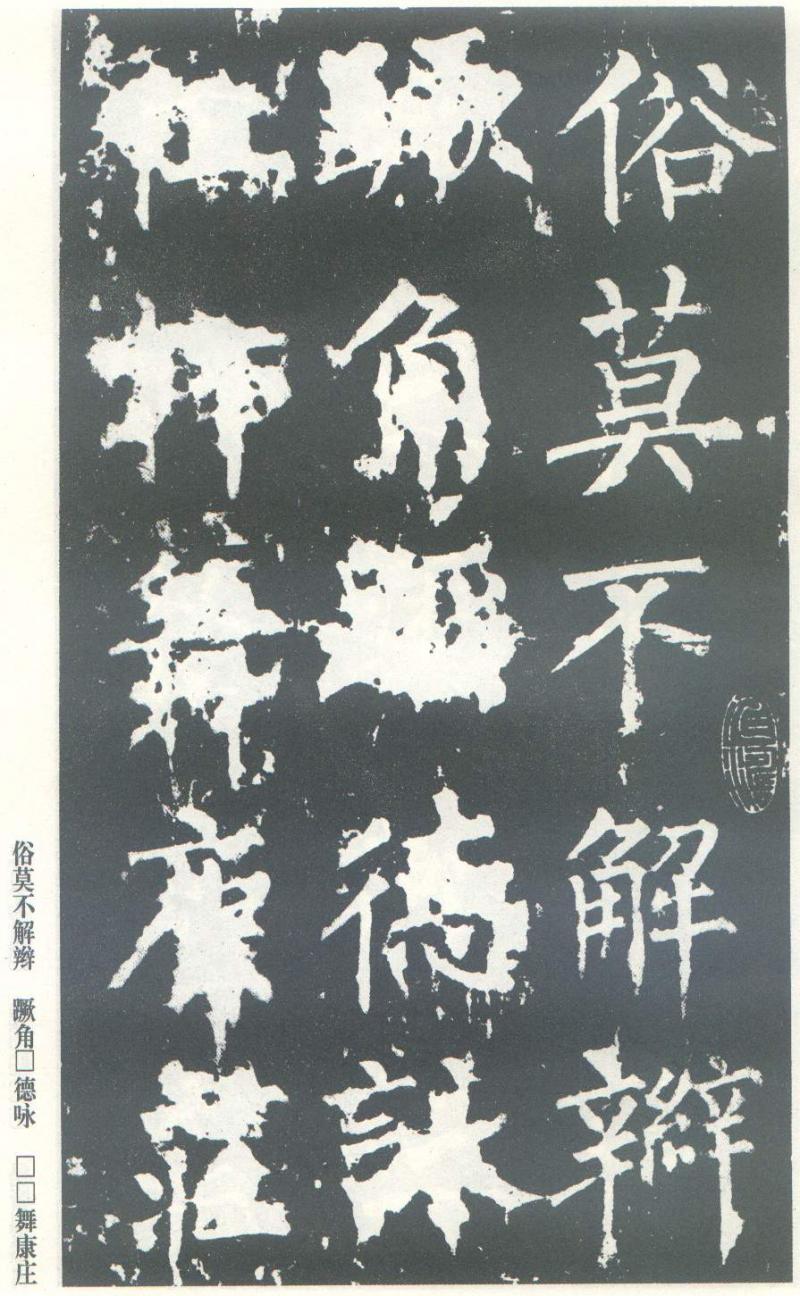 俗莫不解辮
蹶角德詠
舞康莊
俗莫不解辫 蹶角□德咏 □□舞康庄